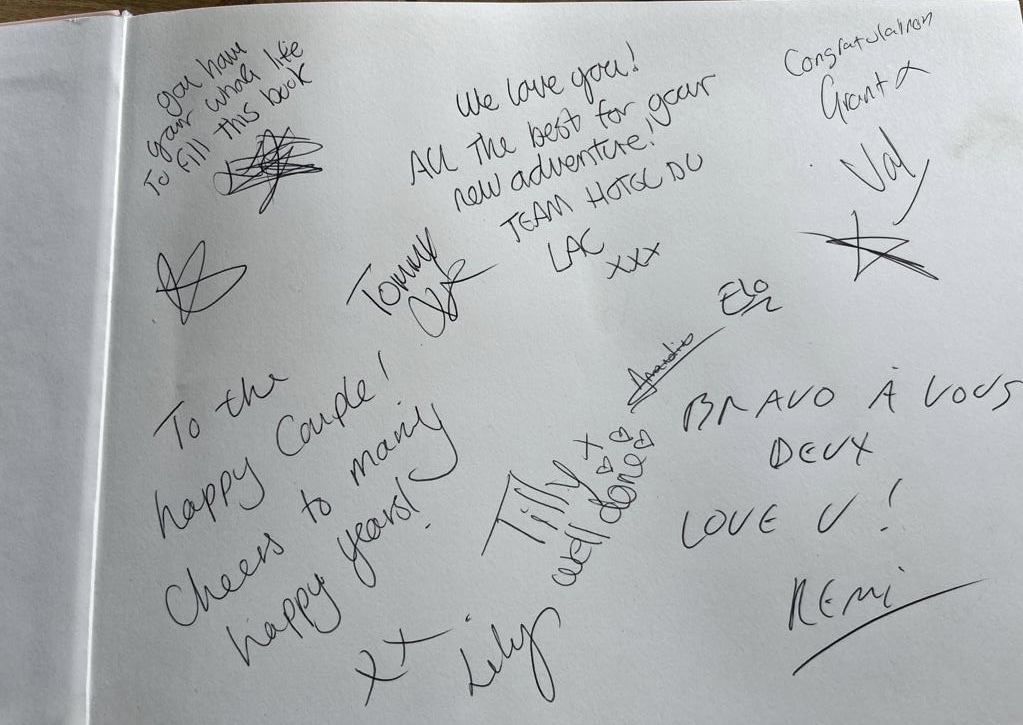 you have
your whole life
To fill this book
We love you!
All the best for your
new adventure!
TEAM HOTEL DU
LAC
xxx
Congratulation
Grant x
Val
Tommy
Elo
To the
happy Couple!
Cheers to many
happy years!
xx
Lily
Tilly x
well done
BRAVO À VOUS
DEUX
LOVE U !
REMI